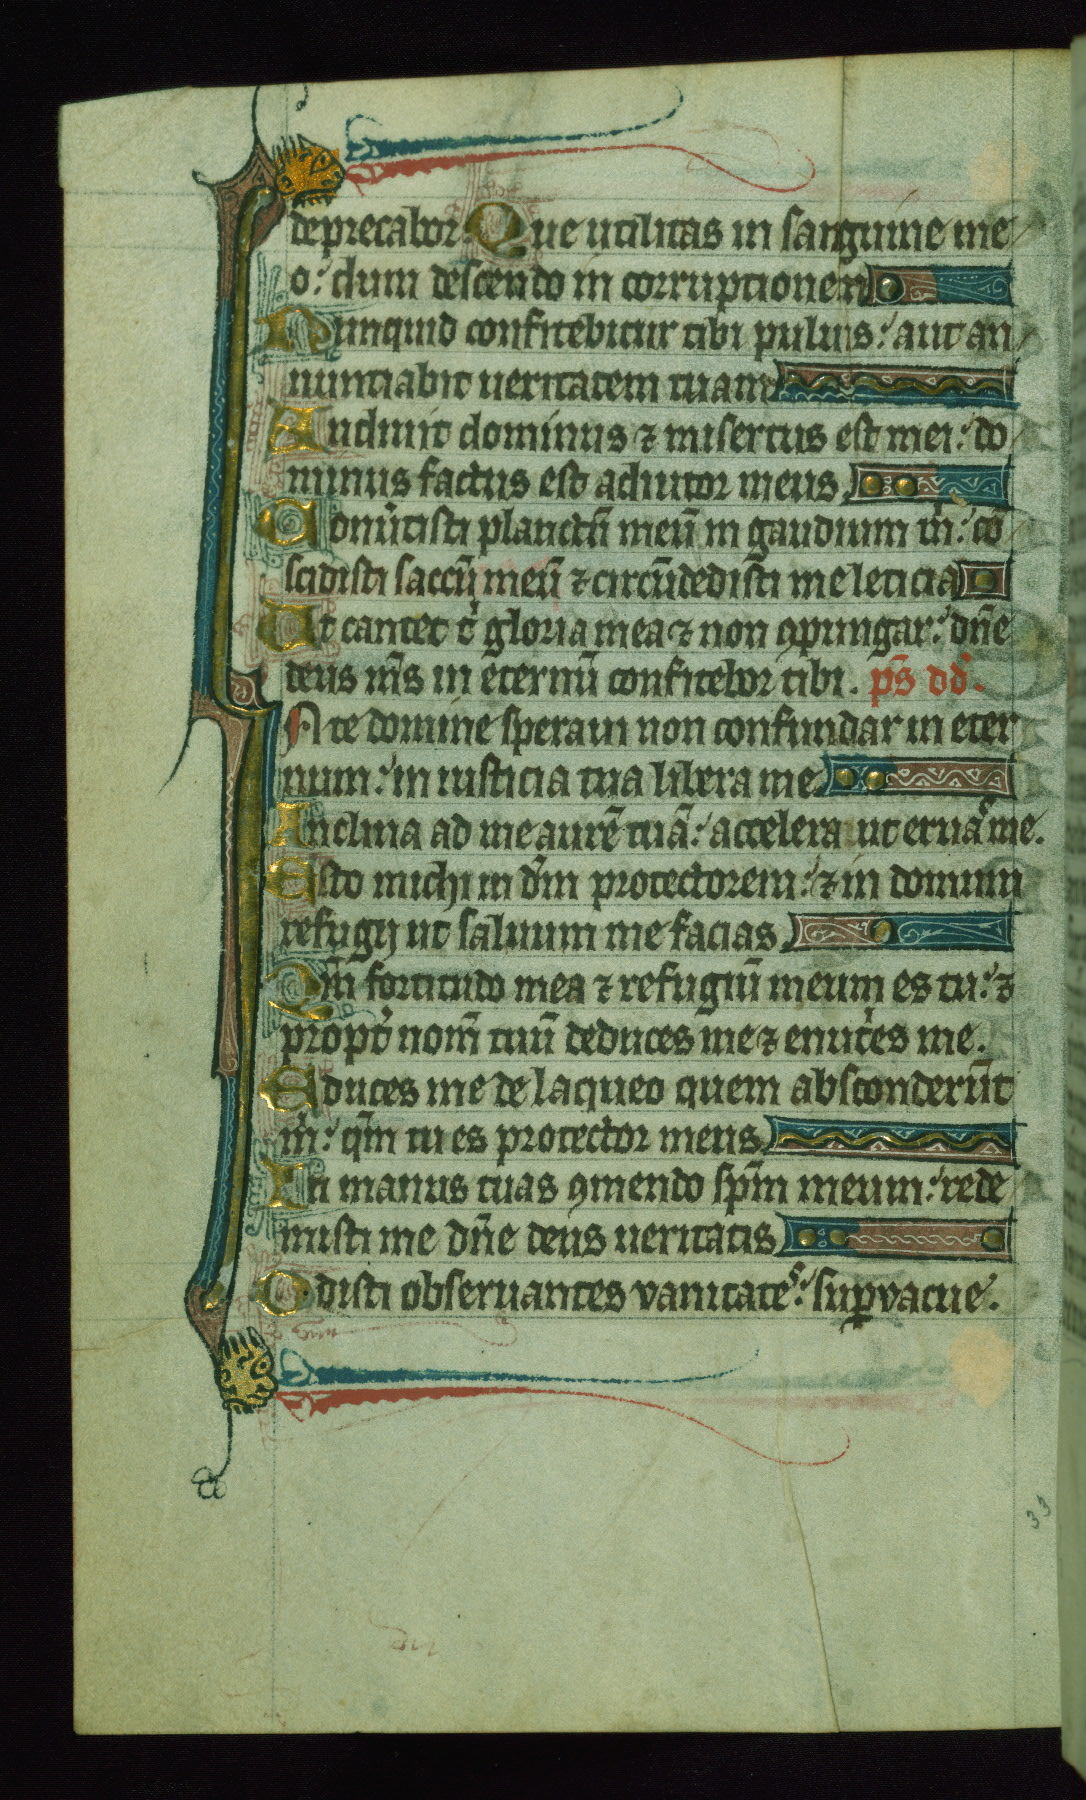 deprecabor. Que utilitas in sanguine me
o: dum descendo in corruptionem
Nunquid confitebitur tibi puluis: aut an
nuntiabit ueritatem tuam
Audiuit dominus ⁊ misertus est mei: do
minus factus est adiutor meus
Conu̾tisti planctū meū in gaudium m̄: cō
scidisti saccū meū ⁊ circūdedisti me leticia
Ut cantet t̾ gloria mea ⁊ non ꝯpungar: dn̄e
deus m̄s in eternū confitebor tibi. ps̄ dd̾.
In te domine speraui non confundar in eter
num: in iusticia tua libera me
Inclina ad me aurē tuā: accelera ut eruaˢ me.
Esto michi in dm̄ protectorem: ⁊ in domum
refugij ut saluum me facias
Qm̄ fortitudo mea ⁊ refugiū meum es tu: ⁊
propt̾ nom̄ tuū deduces me ⁊ enut̾es me.
Educes me de laqueo quem absconderūt
m̄: qm̄ tu es protector meus
In manus tuas ꝯmendo spm̄ meum: rede
misti me dn̄e deus ueritatis
Odisti obseruantes vanitateˢ: suꝑvacue.
33